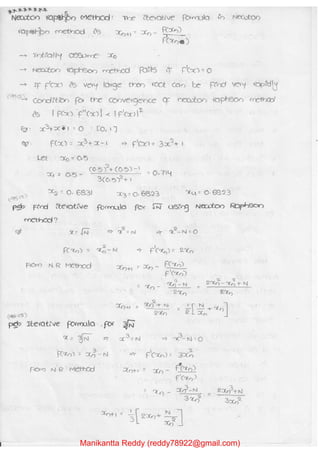 Newton raphson Method: The iterative formula in Newton
raphson method is xn+1 = xn - F(xn) / F'(xn)
→ initially assume x0
→ Newton raphson method fails if F'(x)=0
→ If F'(x) is very large then root can be find very rapidly
Condition for the convergence of newton raphson method
is |F(x) F''(x)| < |F'(x)|²
Ex: x³+x-1 = 0 [0,1]
F(x) = x³+x-1 ⇒ F'(x) = 3x²+1
Let x0 = 0.5
x1 = 0.5 - (0.5)³+(0.5)-1 / 3(0.5)²+1 = 0.714
x2 = 0.6831 x3 = 0.6823 x4 = 0.6823
Find iterative formula for √N using Newton Raphson
method?
x = √N ⇒ x² = N ⇒ x²-N=0
F(xn) = xn²-N ⇒ F'(xn) = 2xn
From N.R Method xn+1 = xn - F(xn) / F'(xn)
= xn - xn²-N / 2xn = 2xn²-xn²+N / 2xn
xn+1 = xn²+N / 2xn = 1/2 [N/xn + xn]
Iterative formula for ∛N
x = ∛N ⇒ x³=N ⇒ x³-N=0
F(xn) = xn³-N ⇒ F'(xn) = 3xn²
From N.R Method xn+1 = xn - F(xn) / F'(xn)
= xn - xn³-N / 3xn² = 2xn³+N / 3xn²
xn+1 = 1/3 [2xn + N/xn²]
Manikantta Reddy (reddy78922@gmail.com)